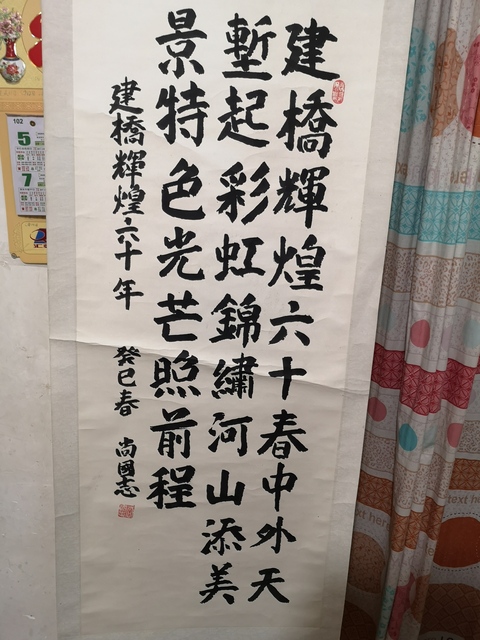 建橋輝煌六十春中外天
塹起彩虹錦繡河山添美
景特色光芒照前程
建橋輝煌六十年 癸巳春 尚國志
102
5
7
text here
text here